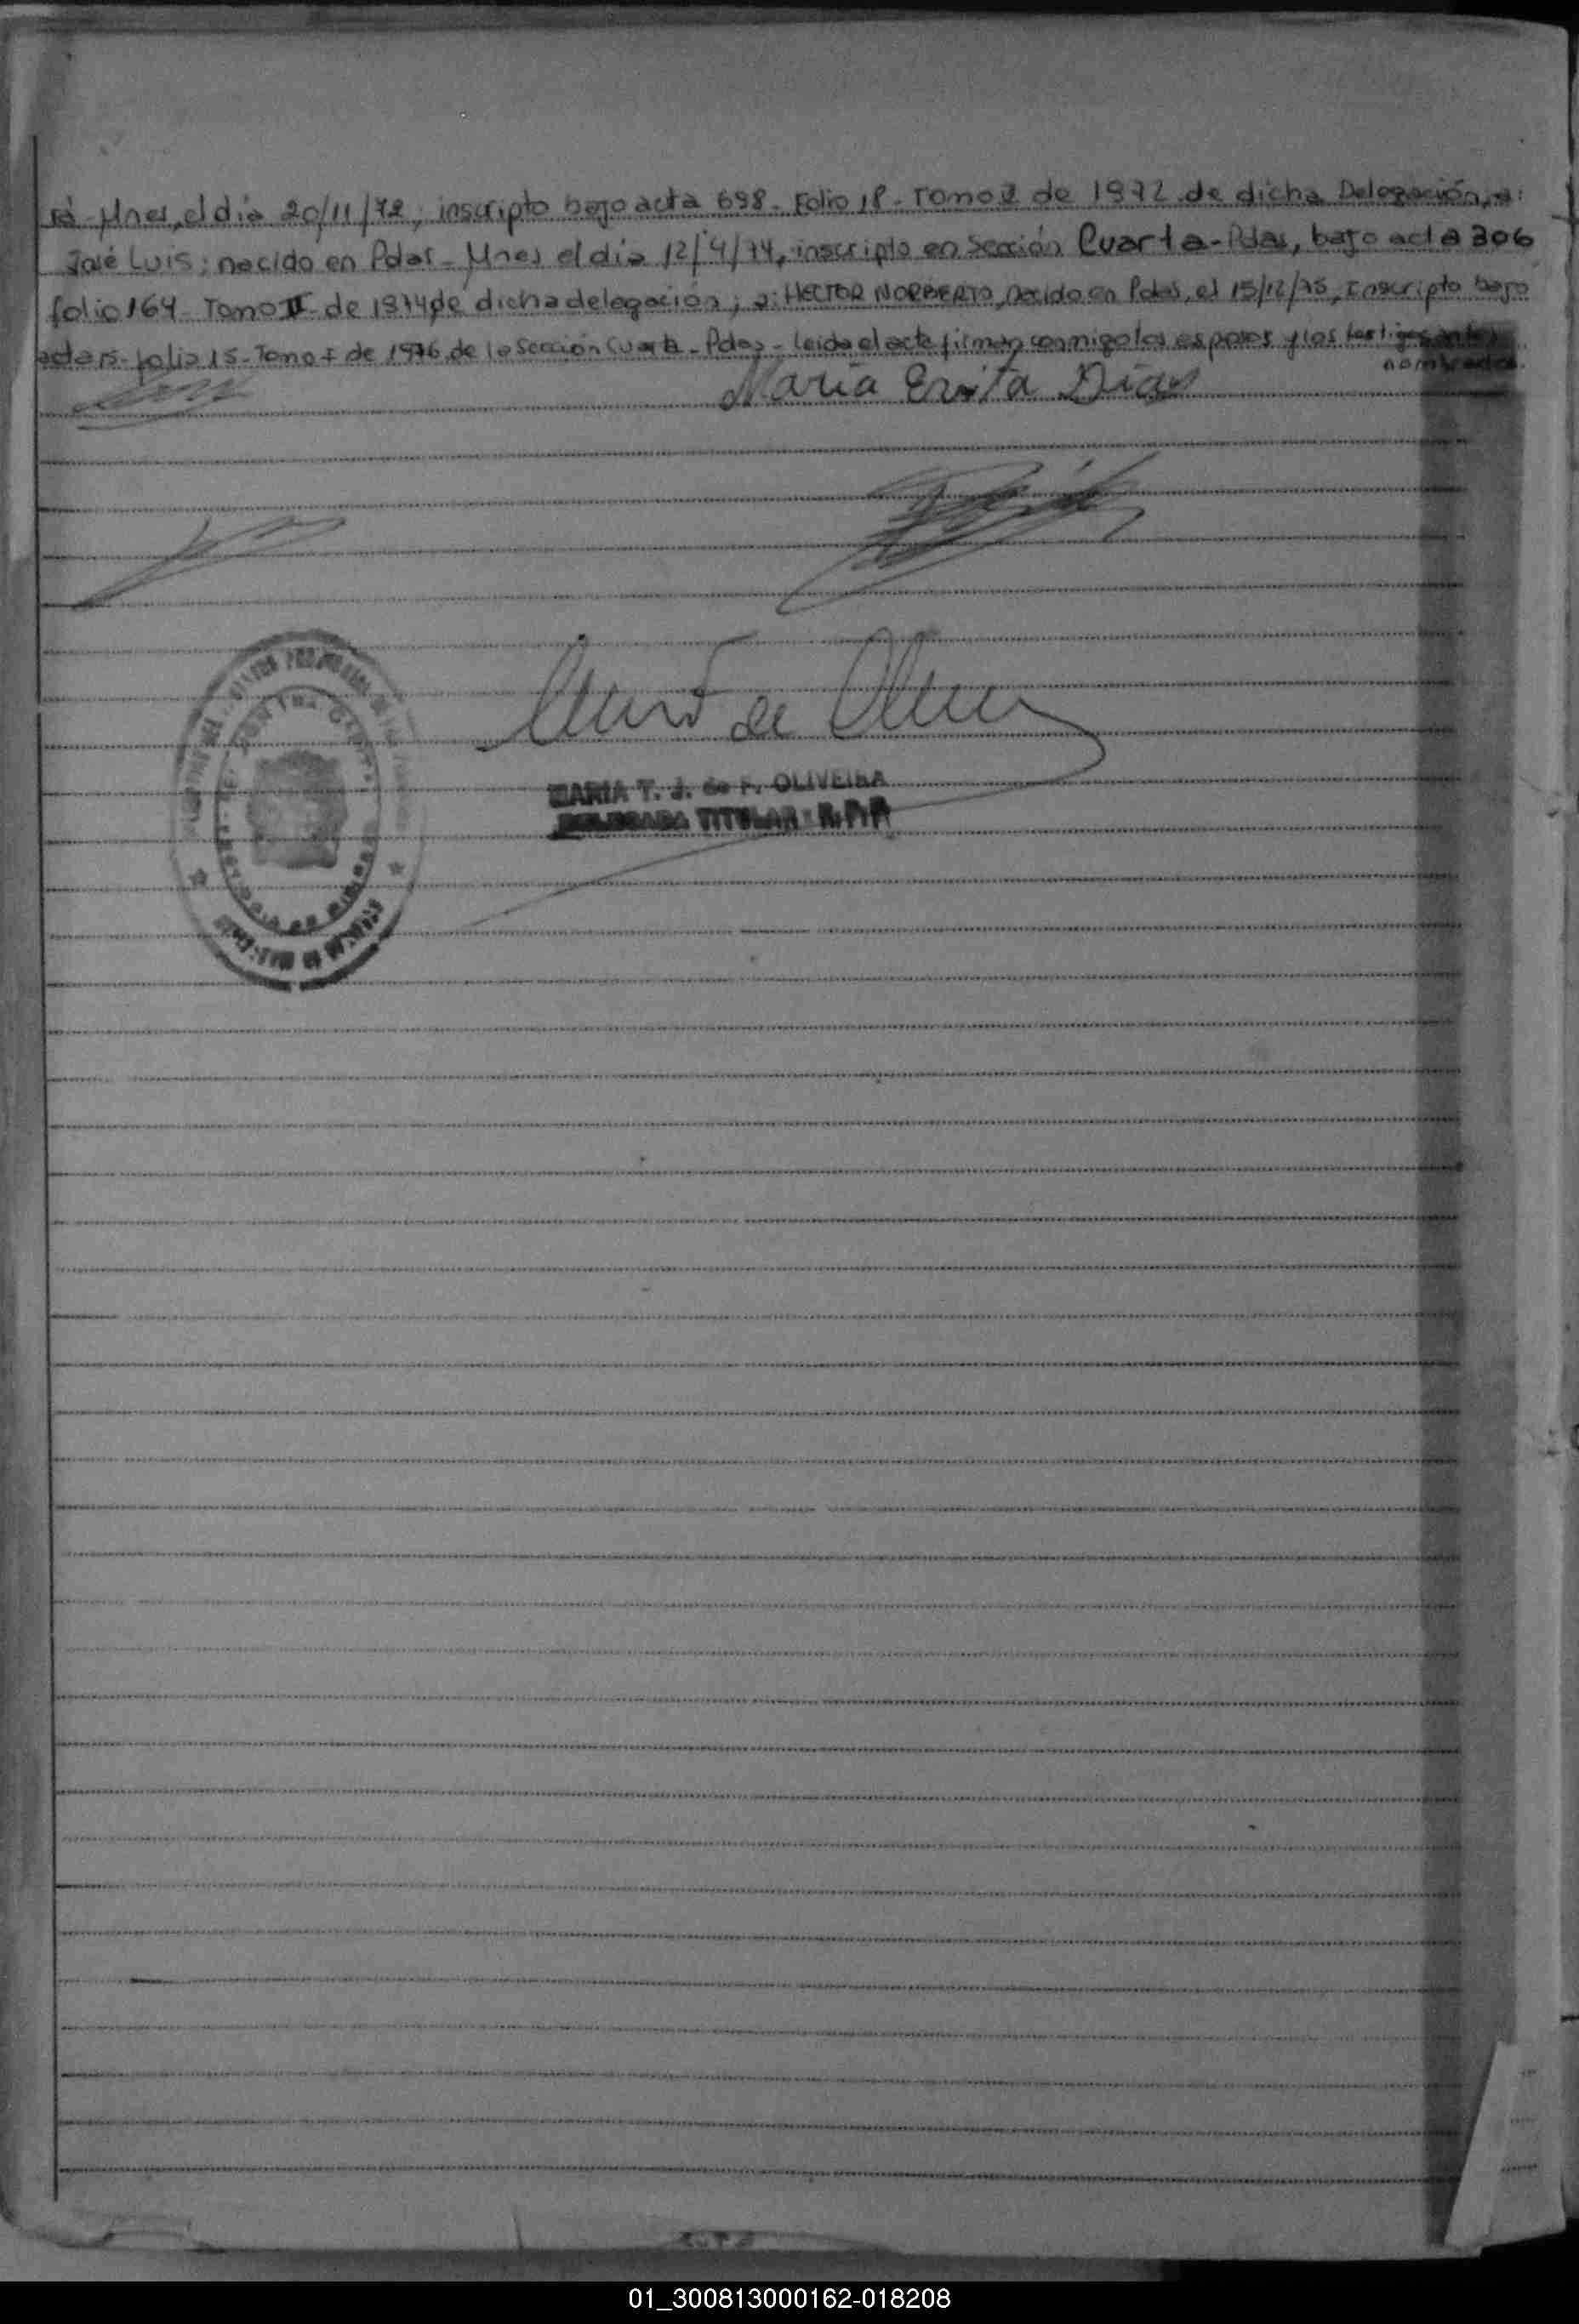 rá - Mnes, el día 20/11/72, inscripto bajo acta 698 - Folio 18 - Tomo de 1972 de dicha Delegación, a:
José Luis: nacido en Pdas - Mnes el día 12/4/74, inscripto en Sección Cuarta - Pdas, bajo acta 306
folio 164 - Tomo II - de 1974, de dicha delegación; a: HECTOR NORBERTO, nacido en Pdas, el 15/12/75, Inscripto bajo
acta 15 - folio 15 - Tomo I de 1976, de la Sección Cuarta - Pdas - Leida el acta firman conmigo los esposos y los testigos antes
nombrados.
María Díaz
MARIA T. J. de F. OLIVEIRA
DELEGADA TITULAR R.P.P
01_300813000162-018208